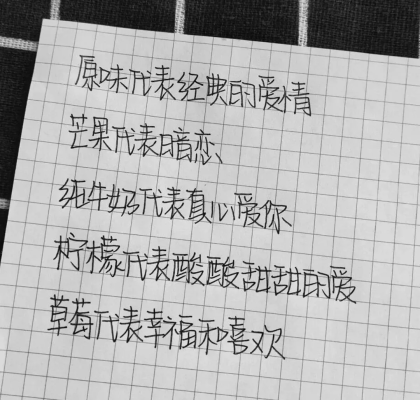 原味代表经典的爱情
芒果代表暗恋、
纯牛奶代表真心爱你、
柠檬代表酸酸甜甜的爱
草莓代表幸福和喜欢